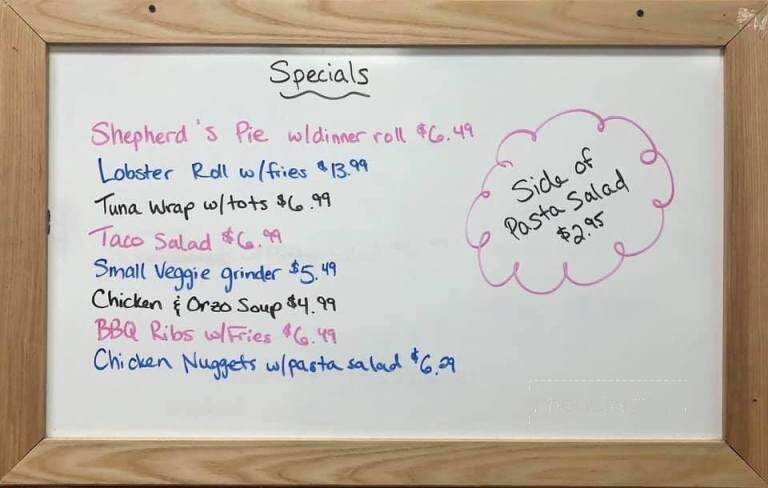 Specials
Shepherd's Pie w/dinner roll $6.49
Lobster Roll w/fries $13.99
Tuna Wrap w/tots $6.99
Taco Salad $6.99
Small Veggie grinder $5.49
Chicken & Orzo Soup $4.99
BBQ Ribs w/Fries $6.49
Chicken Nuggets w/pasta salad $6.29
Side of
Pasta Salad
$2.95